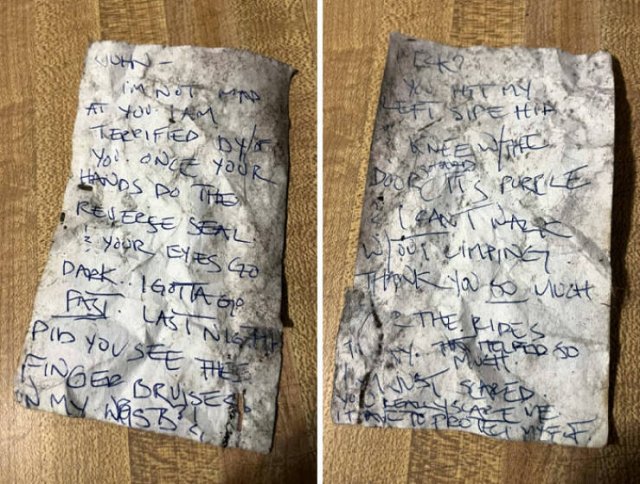 JOHN -
I'M NOT MAD
AT YOU. I AM
TERRIFIED BY/OF
YOU. ONCE YOUR
HANDS DO THE
REVERSE SEAL
& YOUR EYES GO
DARK.. I GOTTA GO
FAST. LAST NIGHT
DID YOU SEE THE
FINGER BRUISES
ON MY
YOU HIT MY
LEFT SIDE HIP
KNEE W/THE
DOOR. IT'S PURPLE
& I CAN'T WALK
W/OUT LIMPING.
THANK YOU SO MUCH
& THE RIDES
HELPED SO
MUCH.
I'M JUST SCARED.
YOU REALLY SCARE ME
I HAVE TO PROTECT MYSELF